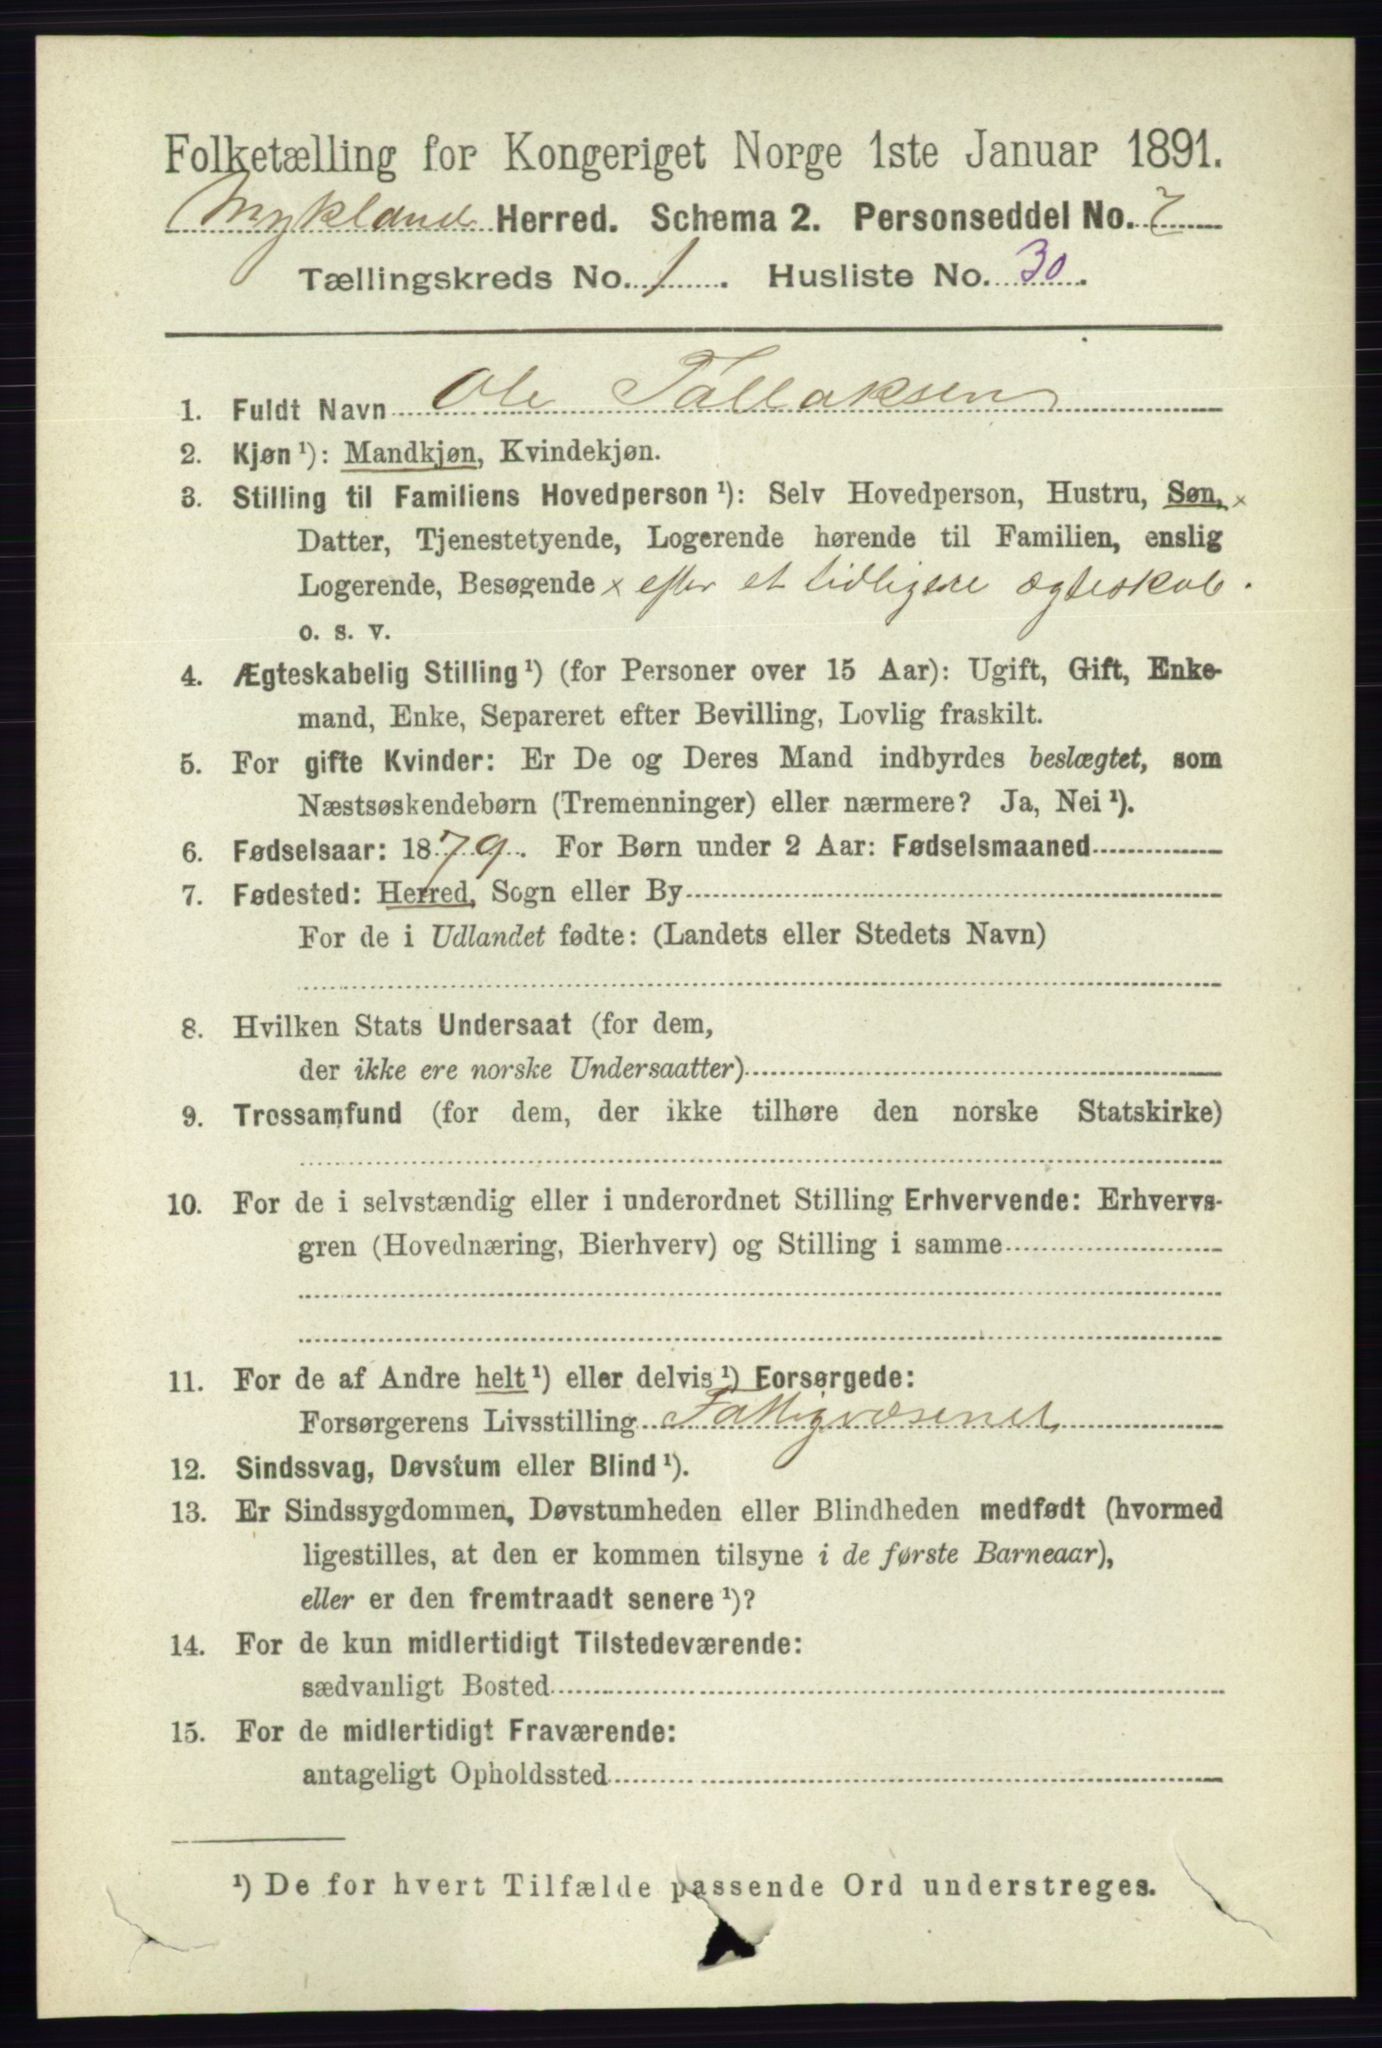 Folketælling for Kongeriget Norge 1ste Januar 1891.
Mykland Herred. Schema 2. Personseddel No. 7
Tællingskreds No. 1. Husliste No. 30.
1. Fuldt Navn Ole Tallaksen
2. Kjøn ¹): Mandkjøn, Kvindekjøn.
3. Stilling til Familiens Hovedperson ¹): Selv Hovedperson, Hustru, Søn, x
Datter, Tjenestetyende, Logerende hørende til Familien, enslig
Logerende, Besøgende x efter et tidligere ægteskab.
o. s. v.
4. Ægteskabelig Stilling ¹) (for Personer over 15 Aar): Ugift, Gift, Enke-
mand, Enke, Separeret efter Bevilling, Lovlig fraskilt.
5. For gifte Kvinder: Er De og Deres Mand indbyrdes beslægtet, som
Næstsøskendebørn (Tremenninger) eller nærmere? Ja, Nei ¹).
6. Fødselsaar: 1879. For Børn under 2 Aar: Fødselsmaaned
7. Fødested: Herred, Sogn eller By
For de i Udlandet fødte: (Landets eller Stedets Navn)
8. Hvilken Stats Undersaat (for dem,
der ikke ere norske Undersaatter)
9. Trossamfund (for dem, der ikke tilhøre den norske Statskirke)
10. For de i selvstændig eller i underordnet Stilling Erhvervende: Erhvervs-
gren (Hovednæring, Bierhverv) og Stilling i samme
11. For de af Andre helt ¹) eller delvis ¹) Forsørgede:
Forsørgerens Livsstilling Fattigvæsenet
12. Sindssvag, Døvstum eller Blind ¹).
13. Er Sindssygdommen, Døvstumheden eller Blindheden medfødt (hvormed
ligestilles, at den er kommen tilsyne i de første Barneaar),
eller er den fremtraadt senere ¹)?
14. For de kun midlertidigt Tilstedeværende:
sædvanligt Bosted
15. For de midlertidigt Fraværende:
antageligt Opholdssted
¹) De for hvert Tilfælde passende Ord understreges.